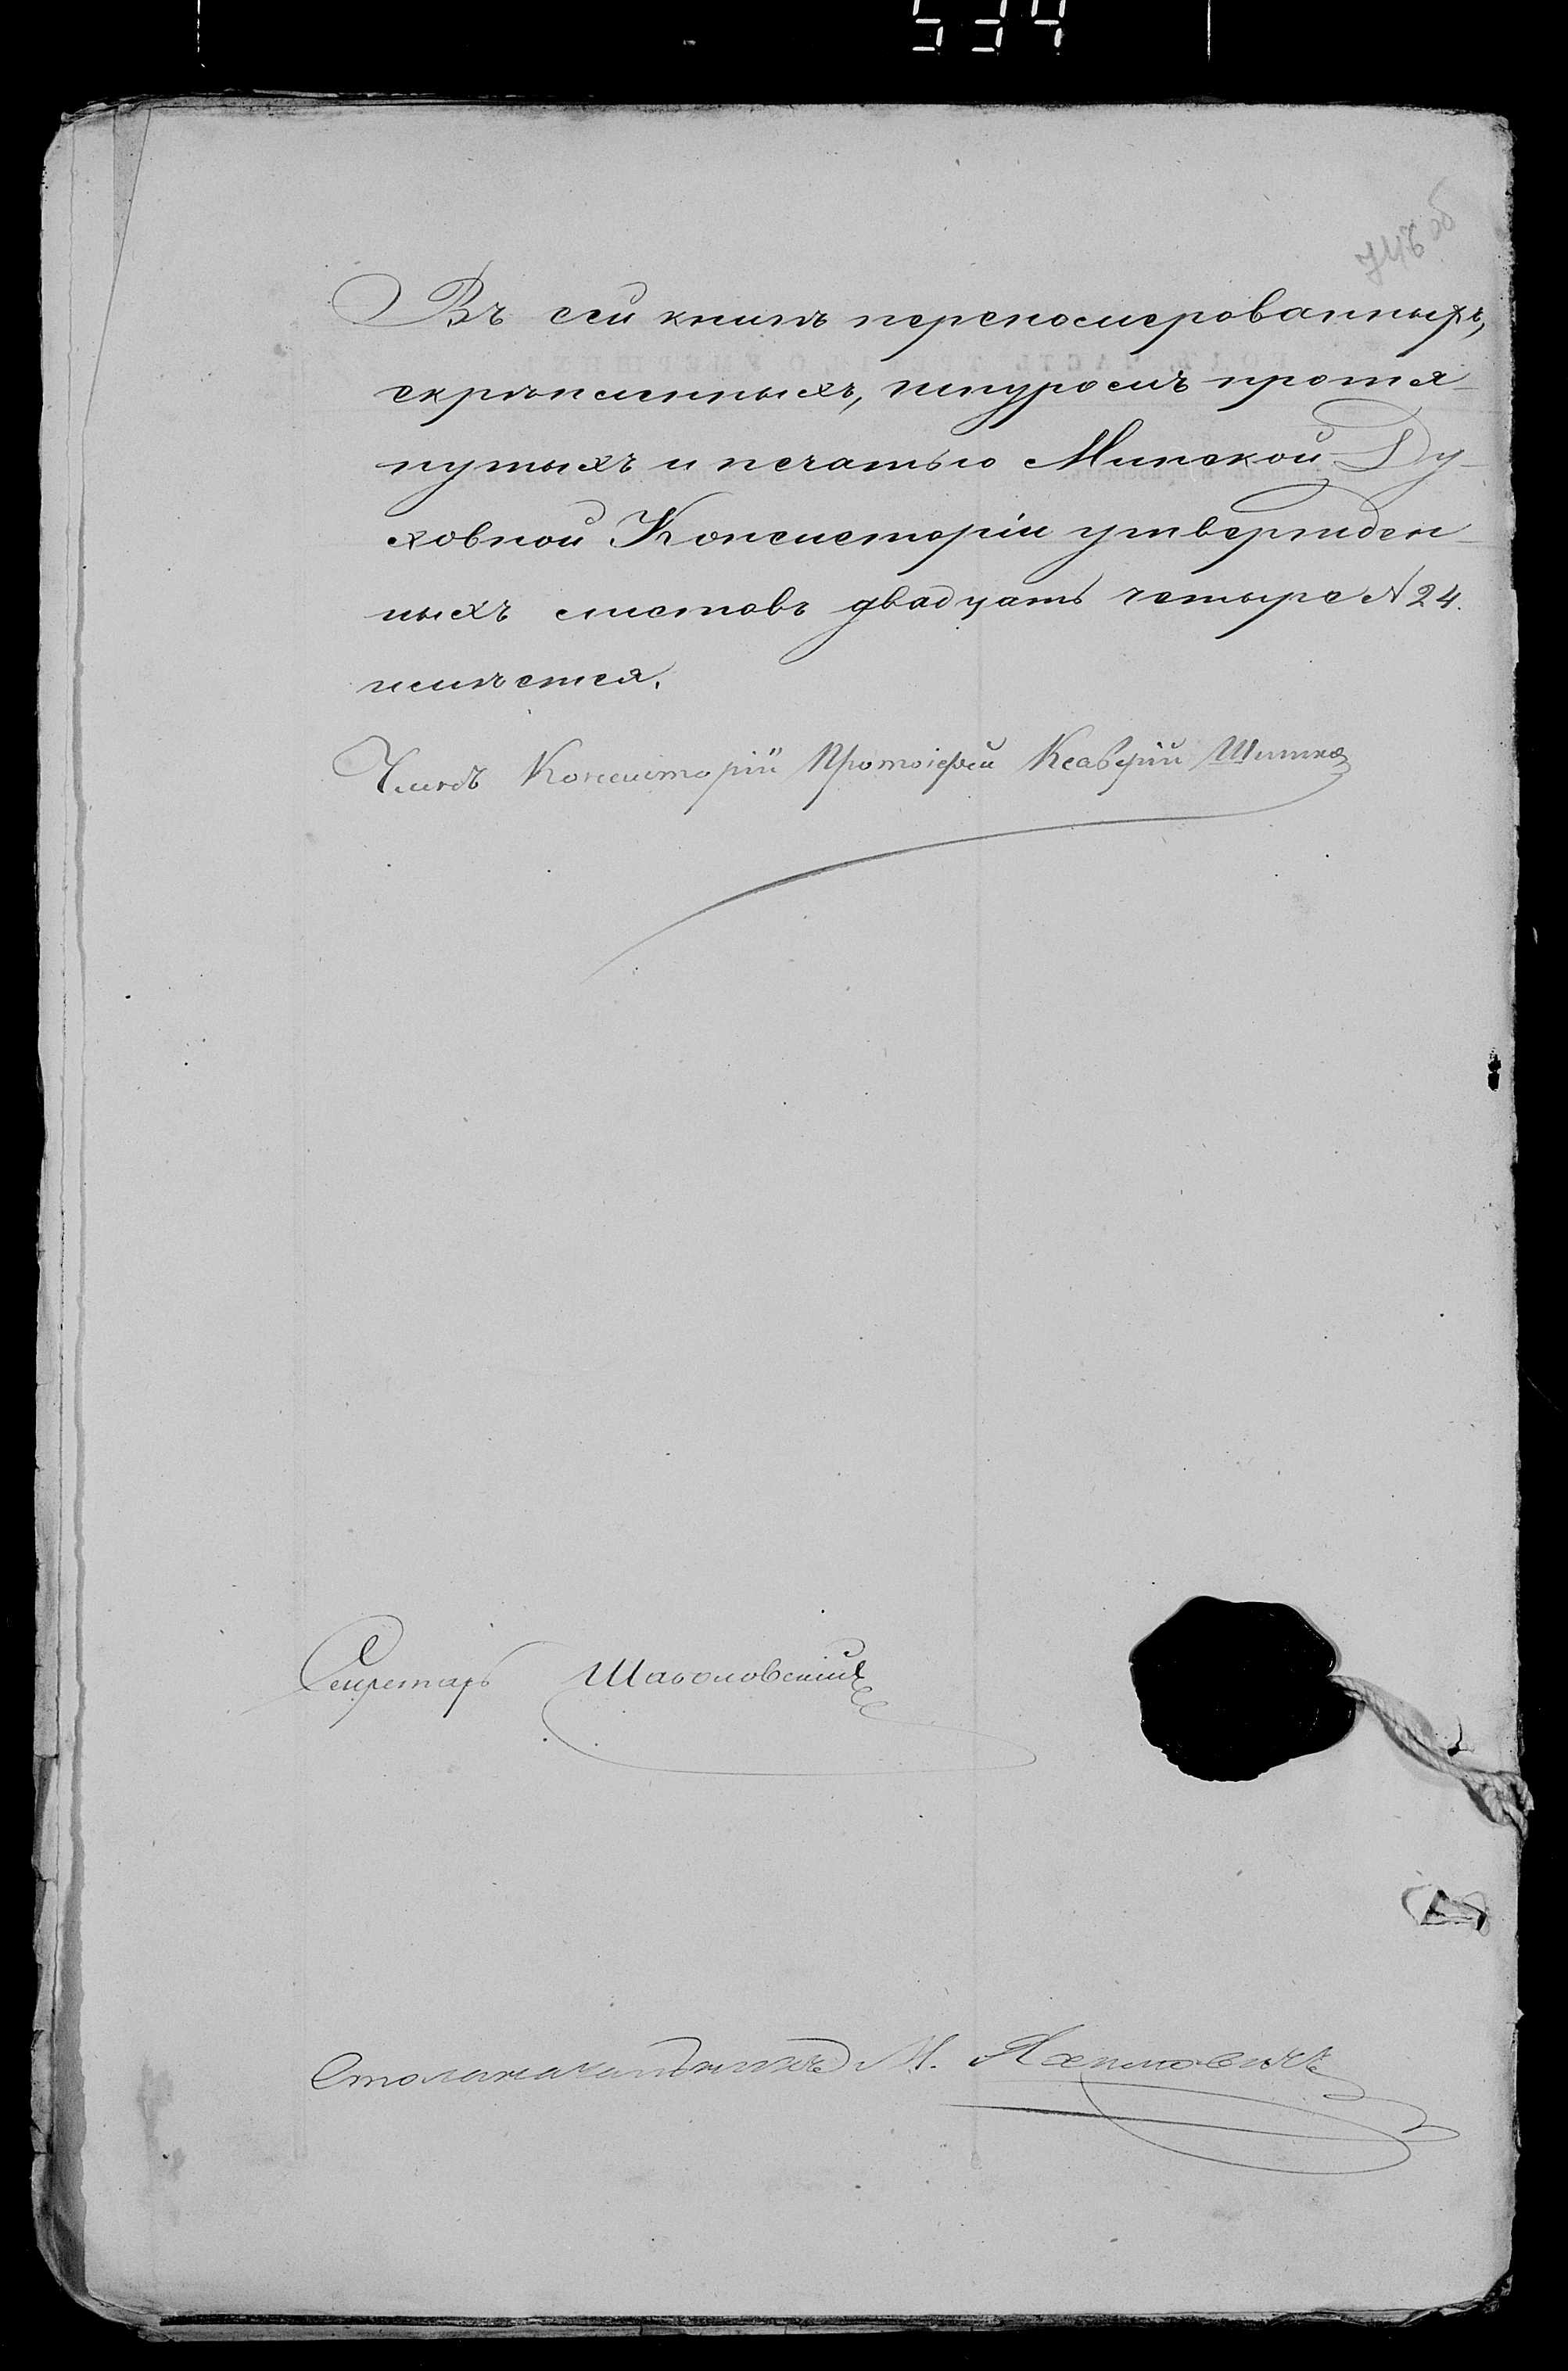 534
746 об
Въ сей книгѣ перепомерованныхъ,
скрѣпленныхъ, шнуромъ протя-
нутыхъ и печатью Минской Ду-
ховной Консисторіи утвержден-
ныхъ листовъ двадцать четыре № 24.
имѣется.
Членъ Консисторіи Протоіерей Ксаверій
Секретарь
Столоначальникъ М.